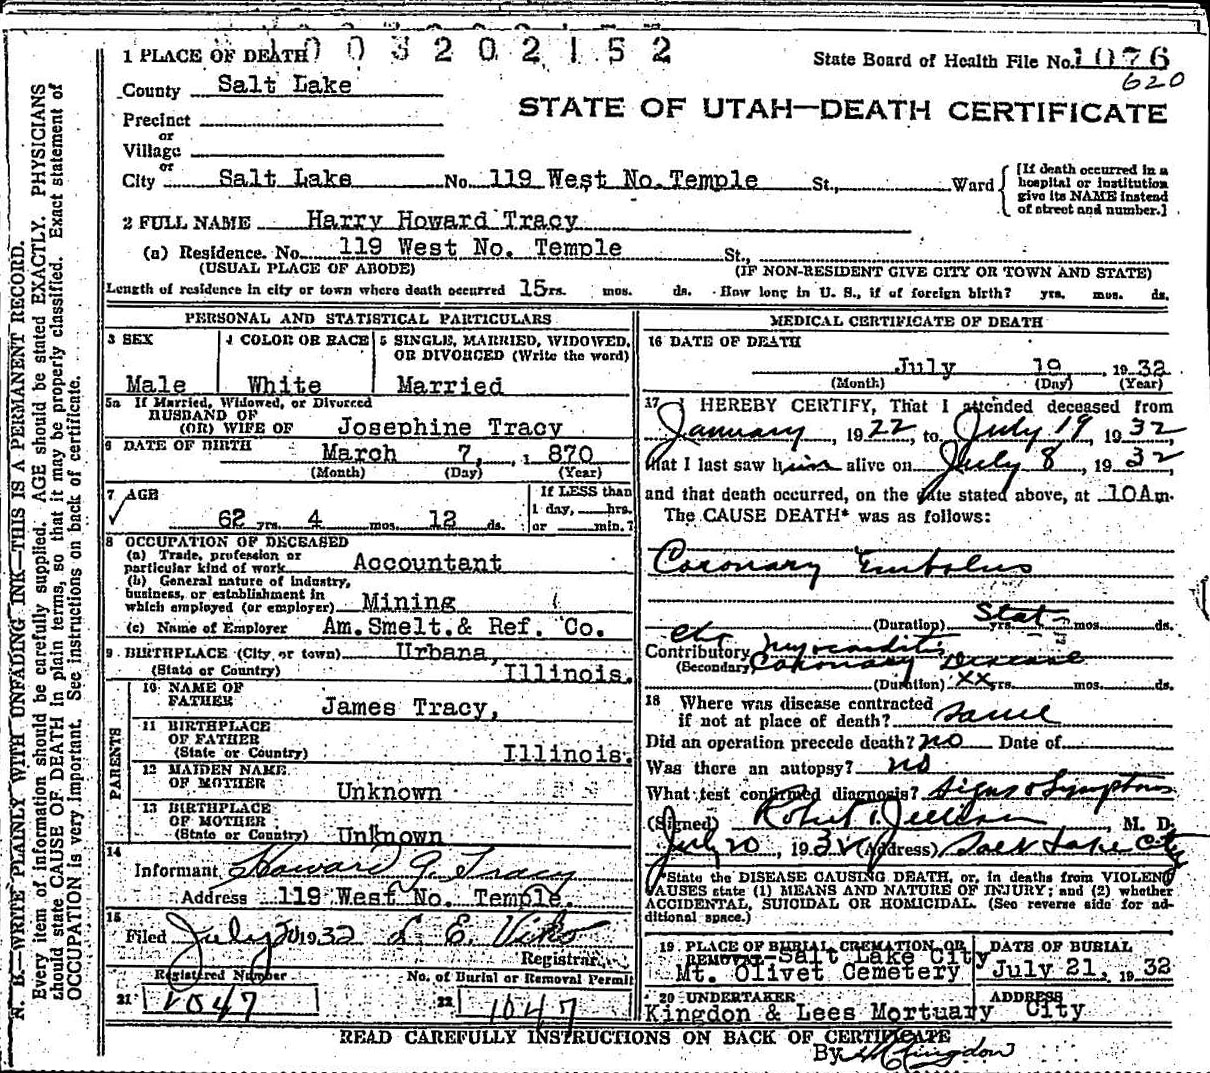 1 PLACE OF DEATH
003202152
State Board of Health File No. 1076
620
County Salt Lake
STATE OF UTAH—DEATH CERTIFICATE
Precinct
or
Village
or
City Salt Lake No. 119 West No. Temple St., Ward
[If death occurred in a
hospital or institution
give its NAME instead
of street and number.]
2 FULL NAME Harry Howard Tracy
(a) Residence. No. 119 West No. Temple St.,
(USUAL PLACE OF ABODE) (IF NON-RESIDENT GIVE CITY OR TOWN AND STATE)
Length of residence in city or town where death occurred 15rs. mos. ds. How long in U. S., if of foreign birth? yrs. mos. ds.
PERSONAL AND STATISTICAL PARTICULARS
3 SEX
Male
4 COLOR OR RACE
White
5 SINGLE, MARRIED, WIDOWED,
OR DIVORCED (Write the word)
Married
5a If Married, Widowed, or Divorced
HUSBAND OF
(OR) WIFE OF Josephine Tracy
6 DATE OF BIRTH March 7, 1870
(Month) (Day) (Year)
7 AGE
62 yrs. 4 mos. 12 ds.
If LESS than
1 day, hrs.
or min.?
8 OCCUPATION OF DECEASED
(a) Trade, profession or
particular kind of work Accountant
(b) General nature of industry,
business, or establishment in
which employed (or employer) Mining
(c) Name of Employer Am. Smelt. & Ref. Co.
9 BIRTHPLACE (City or town) Urbana,
(State or Country) Illinois.
PARENTS
10 NAME OF
FATHER James Tracy,
11 BIRTHPLACE
OF FATHER
(State or Country) Illinois.
12 MAIDEN NAME
OF MOTHER Unknown
13 BIRTHPLACE
OF MOTHER
(State or Country) Unknown
14
Informant Howard G. Tracy
Address 119 West No. Temple.
15
Filed July 20 1932
Registrar
Registered Number
21 1047
No. of Burial or Removal Permit
22 1047
MEDICAL CERTIFICATE OF DEATH
16 DATE OF DEATH
July 19, 1932
(Month) (Day) (Year)
17 I HEREBY CERTIFY, That I attended deceased from
January, 1922, to July 19 1932,
that I last saw him alive on July 8, 1932,
and that death occurred, on the date stated above, at 10 Am.
The CAUSE DEATH* was as follows:
Coronary Embolus
Stat
(Duration) yrs. mos. ds.
Chr Myocarditis
Contributory
(Secondary) Coronary Disease
(Duration) XX yrs. mos. ds.
18 Where was disease contracted
if not at place of death? Same
Did an operation precede death? no Date of
Was there an autopsy? no
What test confirmed diagnosis? Signs & Symptoms
(Signed) Robert T. Jellison M. D.
July 20, 1932 (Address) Salt Lake City
*State the DISEASE CAUSING DEATH, or, in deaths from VIOLENT
CAUSES state (1) MEANS AND NATURE OF INJURY; and (2) whether
ACCIDENTAL, SUICIDAL OR HOMICIDAL. (See reverse side for ad-
ditional space.)
19 PLACE OF BURIAL, CREMATION, OR
REMOVAL Salt Lake City
Mt. Olivet Cemetery
DATE OF BURIAL
July 21, 1932
20 UNDERTAKER ADDRESS
Kingdon & Lees Mortuary City
READ CAREFULLY INSTRUCTIONS ON BACK OF CERTIFICATE
By Kingdon
N. B.—WRITE PLAINLY WITH UNFADING INK—THIS IS A PERMANENT RECORD.
Every item of information should be carefully supplied. AGE should be stated EXACTLY. PHYSICIANS
should state CAUSE OF DEATH in plain terms, so that it may be properly classified. Exact statement of
OCCUPATION is very important. See instructions on back of certificate.